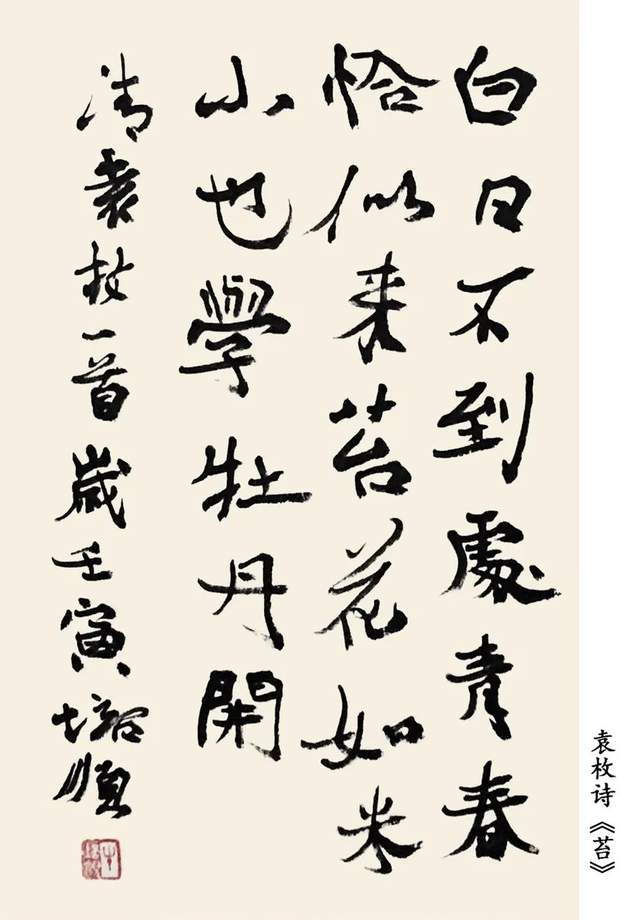 白日不到處青春
恰似来苔花如米
小也學牡丹開
清袁枚一首歲壬寅順
袁枚诗《苔》